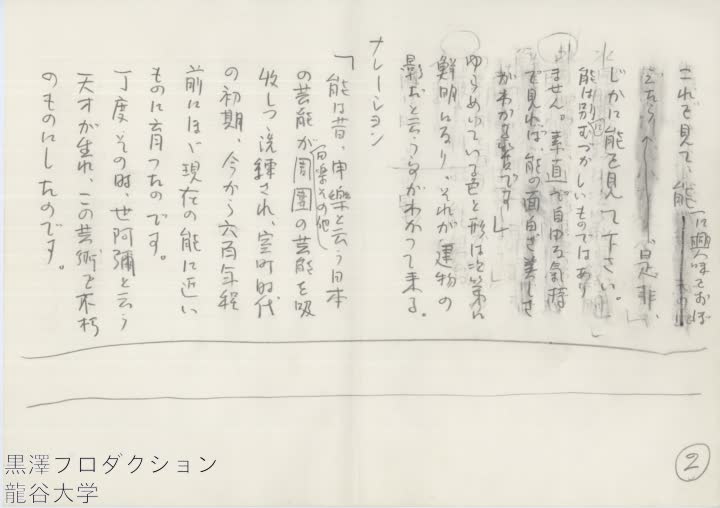 これを見て、能に興味ておぼ
えたら 是非、
じかに能を見て下さい。
能は別にむづかしいものではあり
ません。素直で自由な気持
で見れば、能の面白さ美しさ
がわかる筈です」
ゆらめいている色と形は次第に
鮮明になり、それが建物の
影だと云う事がわかって来る。
ナレーション
「能は昔、申樂と云う日本
の芸能が周囲の芸能を吸
田楽その他
收しつゝ洗練され、室町時代
の初期、今から六百年程
前にほゞ現在の能に近い
ものに育ったのです。
丁度その時、世阿彌と云う
天才が生れ、この芸術を不朽
のものにしたのです。
2
黒澤プロダクション
龍谷大学